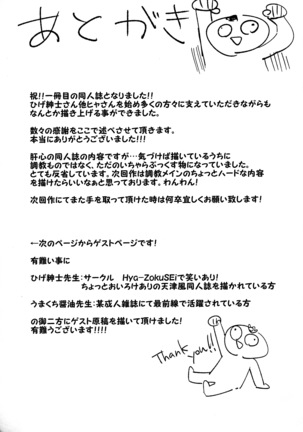 あとがき
祝!!一冊目の同人誌となりました!!
ひげ紳士さん他ヒャさんを始め多くの方々に支えていただきながらも
なんとか描き上げる事ができました。
数々の感謝をここで述べさせて頂きます。
本当にありがとうございました!!!
肝心の同人誌の内容ですが…気づけば描いているうちに
調教ものではなく、ただのいちゃらぶっくす物になっていました。
とても反省しています。次回作は調教メインのちょっとハードな内容
を描けたらいいなぁと思っております。わんわん!
次回作にてまた手を取って頂けた時は何卒宜しくお願い致します!
←次のページからゲストページです!
有難い事に
ひげ紳士先生:サークル Hya-ZokuSEiで笑いあり!
ちょっとおいろけありの天津風同人誌を描かれている方
うまくち醤油先生:某成人雑誌にて最前線で活躍されている方
の御二方にゲスト原稿を描いて頂けました!
有難うございます!!!!
Thank you!!